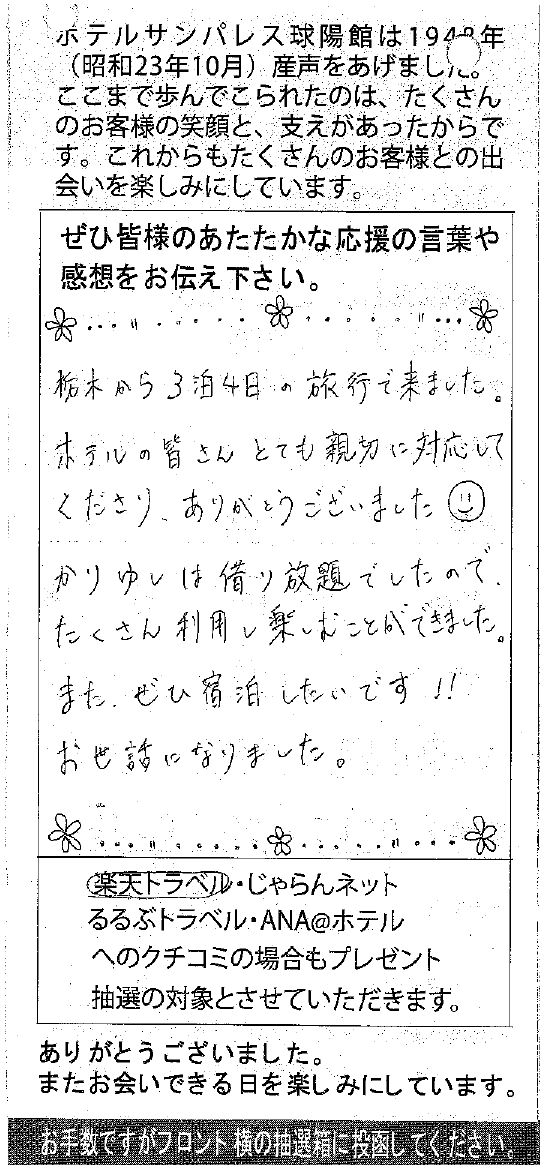 ホテルサンパレス球陽館は1948年
（昭和23年10月）産声をあげました。
ここまで歩んでこられたのは、たくさん
のお客様の笑顔と、支えがあったからで
す。これからもたくさんのお客様との出
会いを楽しみにしています。
ぜひ皆様のあたたかな応援の言葉や
感想をお伝え下さい。
栃木から3泊4日の旅行で来ました。
ホテルの皆さんとても親切に対応して
くださり、ありがとうございました
かりゆしは借り放題でしたので、
たくさん利用し楽しむことができました。
また、ぜひ宿泊したいです!!
お世話になりました。
楽天トラベル・じゃらんネット
るるぶトラベル・ANA@ホテル
へのクチコミの場合もプレゼント
抽選の対象とさせていただきます。
ありがとうございました。
またお会いできる日を楽しみにしています。
お手数ですがフロント横の抽選箱に投函してください。